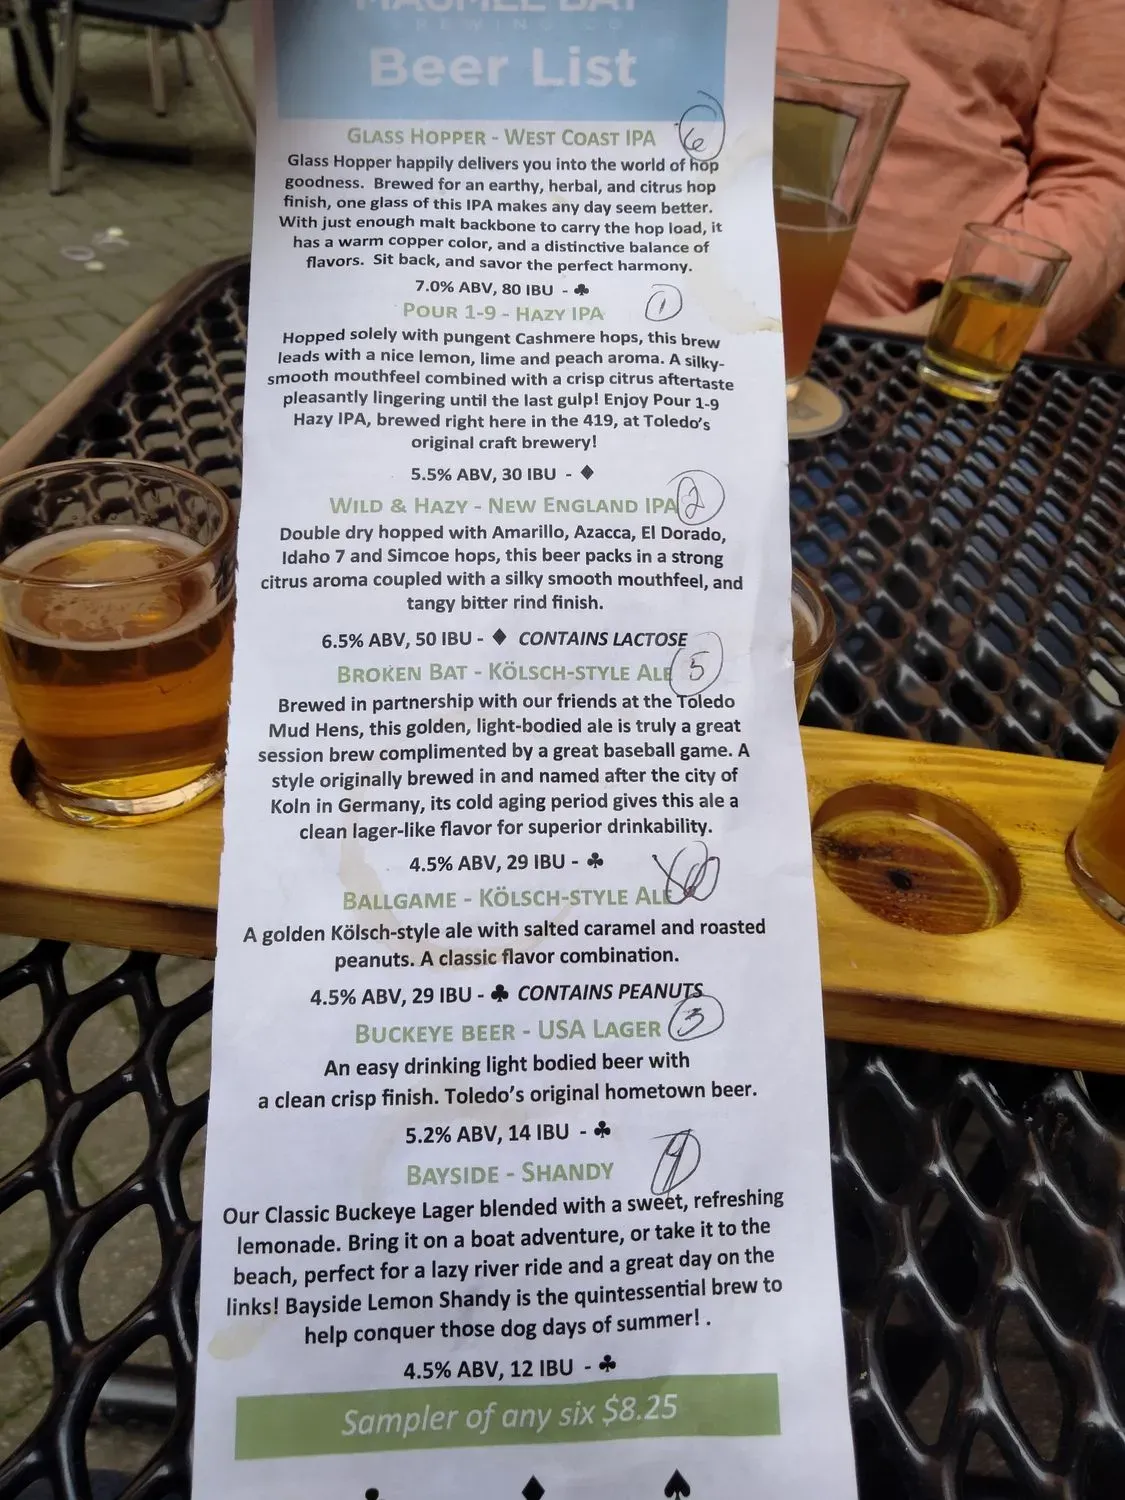 MAUMEE BAY
BREWING CO
Beer List
GLASS HOPPER - WEST COAST IPA 6
Glass Hopper happily delivers you into the world of hop
goodness. Brewed for an earthy, herbal, and citrus hop
finish, one glass of this IPA makes any day seem better.
With just enough malt backbone to carry the hop load, it
has a warm copper color, and a distinctive balance of
flavors. Sit back, and savor the perfect harmony.
7.0% ABV, 80 IBU - ♣
POUR 1-9 - HAZY IPA 1
Hopped solely with pungent Cashmere hops, this brew
leads with a nice lemon, lime and peach aroma. A silky-
smooth mouthfeel combined with a crisp citrus aftertaste
pleasantly lingering until the last gulp! Enjoy Pour 1-9
Hazy IPA, brewed right here in the 419, at Toledo's
original craft brewery!
5.5% ABV, 30 IBU - ♦
WILD & HAZY - NEW ENGLAND IPA 2
Double dry hopped with Amarillo, Azacca, El Dorado,
Idaho 7 and Simcoe hops, this beer packs in a strong
citrus aroma coupled with a silky smooth mouthfeel, and
tangy bitter rind finish.
6.5% ABV, 50 IBU - ♦ CONTAINS LACTOSE
BROKEN BAT - KÖLSCH-STYLE ALE 5
Brewed in partnership with our friends at the Toledo
Mud Hens, this golden, light-bodied ale is truly a great
session brew complimented by a great baseball game. A
style originally brewed in and named after the city of
Koln in Germany, its cold aging period gives this ale a
clean lager-like flavor for superior drinkability.
4.5% ABV, 29 IBU - ♣
BALLGAME - KÖLSCH-STYLE ALE
A golden Kölsch-style ale with salted caramel and roasted
peanuts. A classic flavor combination.
4.5% ABV, 29 IBU - ♣ CONTAINS PEANUTS
BUCKEYE BEER - USA LAGER 3
An easy drinking light bodied beer with
a clean crisp finish. Toledo's original hometown beer.
5.2% ABV, 14 IBU - ♣
BAYSIDE - SHANDY 4
Our Classic Buckeye Lager blended with a sweet, refreshing
lemonade. Bring it on a boat adventure, or take it to the
beach, perfect for a lazy river ride and a great day on the
links! Bayside Lemon Shandy is the quintessential brew to
help conquer those dog days of summer! .
4.5% ABV, 12 IBU - ♣
Sampler of any six $8.25